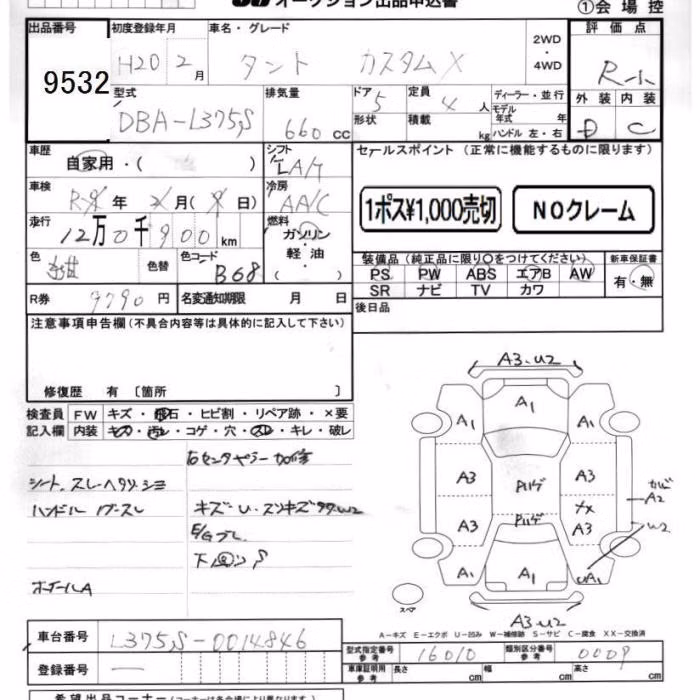 オークション出品申込書
①会場控
出品番号
9532
初度登録年月
H20 2月
車名・グレード
タント カスタムX
2WD
・
4WD
評価点
R-小
外装 内装
D C
型式
DBA-L375S
排気量
660 cc
ドア
5
形状
定員
4 人
積載
kg
ディーラー・並行
モデル年式 年
ハンドル 左・右
車歴
自家用・( )
シフト
IA/T
セールスポイント (正常に機能するものに限ります)
車検
年 月( 日)
冷房
AA/C
1ポス¥1,000売切
NOクレーム
走行
12万0千900km
燃料
ガソリン
軽油
( )
色
色替
色コード
B68
装備品 (純正品に限り○をつけてください)
新車保証書
PS PW ABS エアB AW
SR ナビ TV カワ
有・無
R券
9790円
名変通知期限 月 日
後日品
注意事項申告欄(不具合内容等は具体的に記入して下さい)
修復歴 有 〔箇所 〕
検査員 FW キズ・飛石・ヒビ割・リペア跡・×要
記入欄 内装 キズ・汚レ・コゲ・穴・スレ・キレ・破レ
右センタピラー 加修
シート、スレヘタリ、シミ
ハンドル スレ
キズ・U・スリキズ
下 S
ホイールA
A3.U2
A1
A1 A1
A3 A3
A2
A3 A3
W2
A1 A1 UA1
スペア
A3.U2
A－キズ E－エクボ U－凹み W－補修跡 S－サビ C－腐食 XX－交換済
車台番号
L375S-0014846
登録番号
―
型式指定番号 参考
16010
類別区分番号 参考
0009
車庫証明用 参考
長さ cm
幅 cm
高さ cm
希望出品コーナー(コーナーは会場により異なります)